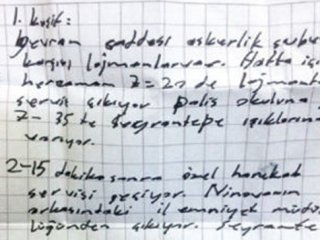 1. keşif:
Devran caddesi askerlik şube
karşısı lojmanlarvar. Hatta iç
herzaman 7=20 de lojmant
servis çıkıyor polis okuluna
7-35 te Seyrantepe ışıklarına
varıyor.
2-15 dakika sonra özel harekat
servisi geçiyor. Ninovanın
arkasındaki il emniyet müdü
lüğünden çıkıyor. Seyrante